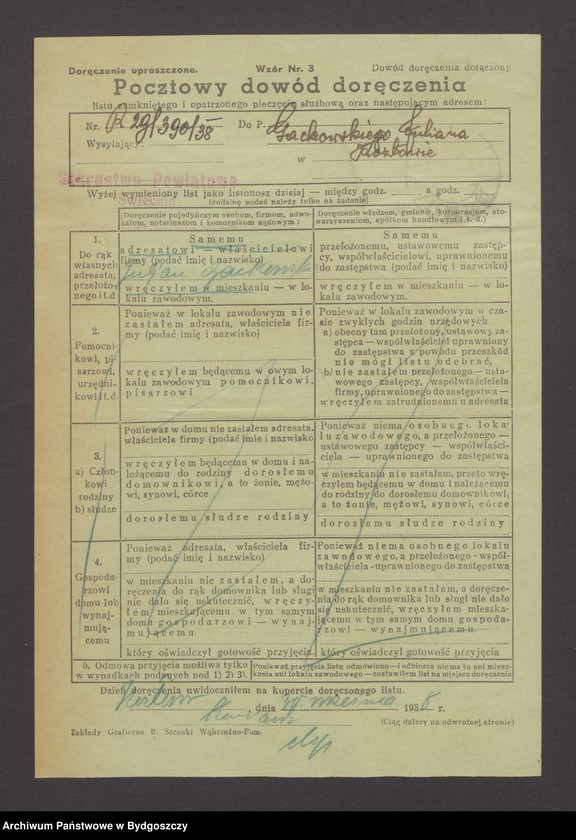 Doręczenie uproszczone. Wzór Nr. 3 Dowód doręczenia dołączony
Pocztowy dowód doręczenia
listu zamkniętego i opatrzonego pieczęcią służbową oraz następującym adresem:
Nr. R 29/390/38 Do P. Gackowskiego Juliana
Wysyłający: w Kozłowie
Starostwo Powiatowe
Świecie
Wyżej wymieniony list jako listonosz dzisiaj — między godz. a godz.
(godzinę podać należy tylko na żądanie)
(Doręczenie pojedyńczym osobom, firmom, adwokatom, notariuszom i komornikom sądowym)
(Doręczenie władzom, gminom, korporacjom, stowarzyszeniom, spółkom handlowym i t. d.)
1.
Do rąk
własnych
adresata,
przełożonego
i t.d
Samemu
adresatowi — właścicielowi
firmy (podać imię i nazwisko)
Julian Gackowski
wręczyłem w mieszkaniu — w lokalu
zawodowym.
Samemu
przełożonemu, ustawowemu zastępcy,
współwłaścicielowi, uprawnionemu
do zastępstwa (podać imię i nazwisko)
wręczyłem w mieszkaniu — w lokalu
zawodowym.
2.
Pomocnikowi,
pisarzowi,
urzędnikowi
i t. d.
Ponieważ w lokalu zawodowym nie
zastałem adresata, właściciela firmy
(podać imię i nazwisko)
wręczyłem będącemu w owym lokalu
zawodowym pomocnikowi,
pisarzowi
Ponieważ w lokalu zawodowym w czasie
zwykłych godzin urzędowych
a) obecny tam przełożony, ustawowy zastępca
— współwłaściciel uprawniony
do zastępstwa z powodu przeszkód
nie mógł listu odebrać,
b) nie zastałem przełożonego — ustawowego
zastępcy, współwłaściciela
firmy, uprawnionego do zastępstwa —
wręczyłem zatrudnionemu u adresata
3.
a) Członkowi
rodziny
b) słudze
Ponieważ w domu nie zastałem adresata,
właściciela firmy (podać imię i nazwisko
wręczyłem będącemu w domu i należącemu
do rodziny dorosłemu
domownikowi, a to żonie, mężowi,
synowi, córce
dorosłemu słudze rodziny
Ponieważ niema osobnego lokalu
zawodowego, a przełożonego —
ustawowego zastępcy — współwłaściciela
— uprawnionego do zastępstwa
w mieszkaniu nie zastałem, przeto wręczyłem
będącemu w domu i należącemu
do rodziny do dorosłemu domownikowi,
a to żonie, mężowi, synowi, córce
dorosłemu słudze rodziny
4.
Gospodarzowi
domu lub
wynajmującemu
Ponieważ adresata, właściciela firmy
(podać imię i nazwisko)
w mieszkaniu nie zastałem, a doręczenia
do rąk domownika lub sługi
nie dało się uskutecznić, wręczyłem
mieszkającemu w tym samym
domu gospodarzowi — wynajmującemu
który oświadczył gotowość przyjęcia
Ponieważ niema osobnego lokalu
zawodowego, a przełożonego - współwłaściciela
- uprawnionego do zastępstwa
w mieszkaniu nie zastałem, a doręczenia
do rąk domownika lub sługi nie dało
się uskutecznić, wręczyłem mieszkającemu
w tym samym domu gospodarzowi
— wynajmującemu
który oświadczył gotowość przyjęcia
5. Odmowa przyjęcia możliwa tylko
w wypadkach podanych pod 1) 2) 3).
Ponieważ przyjęcia listu odmówiono — i odbierca niema tu ani mieszkania
ani lokalu zawodowego — zostawiłem list na miejscu doręczenia
Dzień doręczenia uwidoczniłem na kopercie doręczonego listu.
, dnia 30 września 1938 r.
(Ciąg dalszy na odwrotnej stronie)
Zakłady Graficzne B. Szczuki Wąbrzeźno-Pom.
Archiwum Państwowe w Bydgoszczy